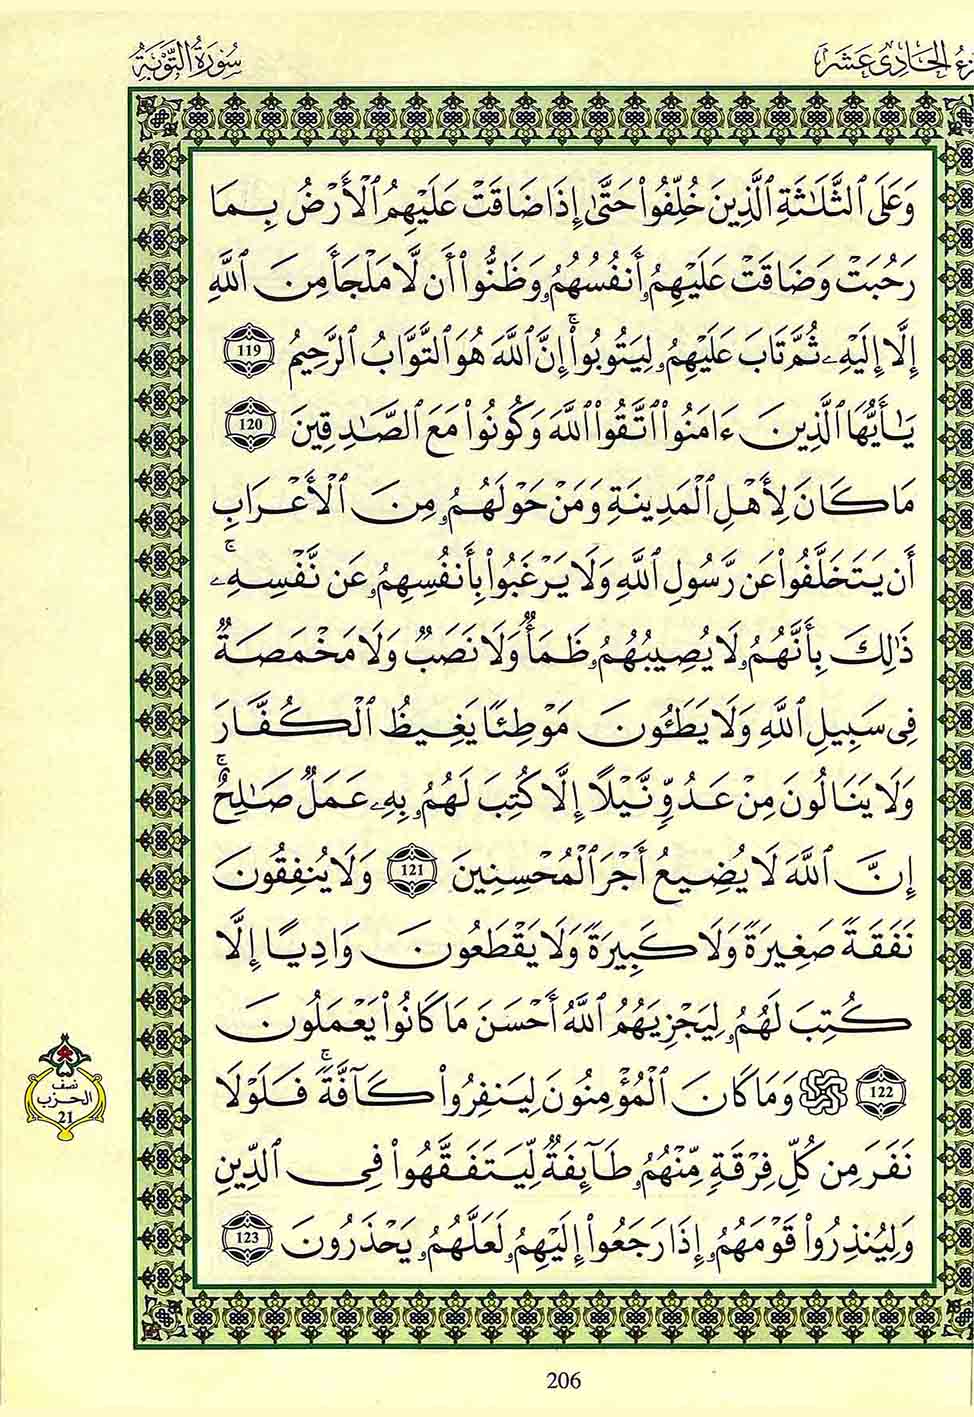 زء الحادى عشر
سورة التوبة
وَعَلَى ٱلثَّلَٰثَةِ ٱلَّذِينَ خُلِّفُواْ حَتَّىٰ إِذَا ضَاقَتْ عَلَيْهِمُ ٱلْأَرْضُ بِمَا
رَحُبَتْ وَضَاقَتْ عَلَيْهِمُۥ أَنفُسُهُمُۥ وَظَنُّواْ أَن لَّا مَلْجَأَ مِنَ ٱللَّهِ
إِلَّا إِلَيْهِۦ ثُمَّ تَابَ عَلَيْهِمُۥ لِيَتُوبُواْۚ إِنَّ ٱللَّهَ هُوَ ٱلتَّوَّابُ ٱلرَّحِيمُ 119
يَٰأَيُّهَا ٱلَّذِينَ ءَامَنُواْ ٱتَّقُواْ ٱللَّهَ وَكُونُواْ مَعَ ٱلصَّٰدِقِينَ 120
مَا كَانَ لِأَهْلِ ٱلْمَدِينَةِ وَمَنْ حَوْلَهُمُۥ مِنَ ٱلْأَعْرَابِ
أَن يَتَخَلَّفُواْ عَن رَّسُولِ ٱللَّهِ وَلَا يَرْغَبُواْ بِأَنفُسِهِمُۥ عَن نَّفْسِهِۦۚ
ذَٰلِكَ بِأَنَّهُمُۥ لَا يُصِيبُهُمُۥ ظَمَأٌ وَلَا نَصَبٌ وَلَا مَخْمَصَةٌ
فِى سَبِيلِ ٱللَّهِ وَلَا يَطَـُٔونَ مَوْطِئًا يَغِيظُ ٱلْكُفَّارَ
وَلَا يَنَالُونَ مِنْ عَدُوٍّ نَّيْلًا إِلَّا كُتِبَ لَهُمُۥ بِهِۦ عَمَلٌ صَٰلِحٌۚ
إِنَّ ٱللَّهَ لَا يُضِيعُ أَجْرَ ٱلْمُحْسِنِينَ 121 وَلَا يُنفِقُونَ
نَفَقَةً صَغِيرَةً وَلَا كَبِيرَةً وَلَا يَقْطَعُونَ وَادِيًا إِلَّا
كُتِبَ لَهُمُۥ لِيَجْزِيَهُمُ ٱللَّهُ أَحْسَنَ مَا كَانُواْ يَعْمَلُونَ
122 وَمَا كَانَ ٱلْمُؤْمِنُونَ لِيَنفِرُواْ كَآفَّةًۚ فَلَوْلَا
نَفَرَ مِن كُلِّ فِرْقَةٍ مِّنْهُمُۥ طَآئِفَةٌ لِّيَتَفَقَّهُواْ فِى ٱلدِّينِ
وَلِيُنذِرُواْ قَوْمَهُمُۥ إِذَا رَجَعُواْ إِلَيْهِمُۥ لَعَلَّهُمُۥ يَحْذَرُونَ 123
نصف
الحزب
21
206